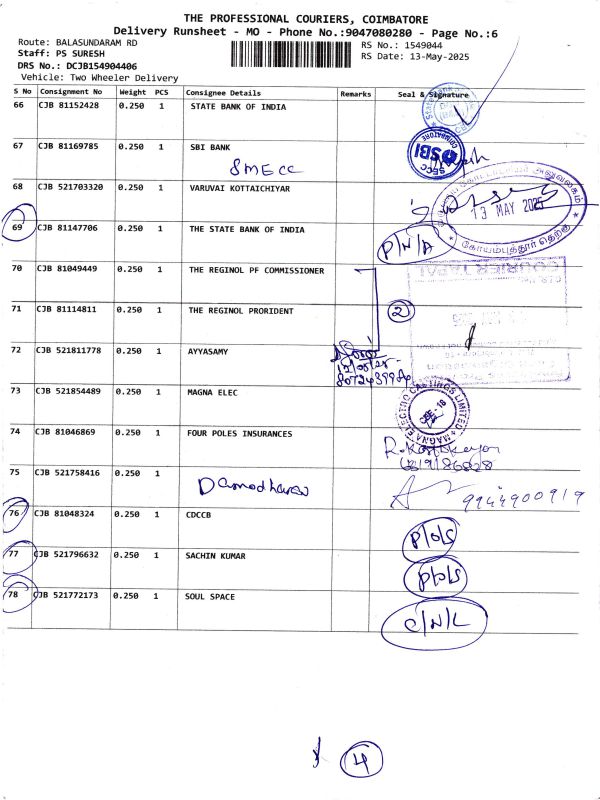 THE PROFESSIONAL COURIERS, COIMBATORE
Delivery Runsheet - MO - Phone No.:9047080280 - Page No.:6
Route: BALASUNDARAM RD
RS No.: 1549044
Staff: PS SURESH
RS Date: 13-May-2025
DRS No.: DCJB154904406
Vehicle: Two Wheeler Delivery
S No Consignment No Weight PCS Consignee Details Remarks Seal & Signature
66 CJB 81152428 0.250 1 STATE BANK OF INDIA
67 CJB 81169785 0.250 1 SBI BANK
SMECC
SBI
SECC
COIMBATORE
68 CJB 521703320 0.250 1 VARUVAI KOTTAICHIYAR
13 MAY 2025
கோயம்புத்தூர் தெற்கு
69 CJB 81147706 0.250 1 THE STATE BANK OF INDIA
P/N/A
70 CJB 81049449 0.250 1 THE REGINOL PF COMMISSIONER
COURIER TAPAL
71 CJB 81114811 0.250 1 THE REGINOL PRORIDENT
2
72 CJB 521811778 0.250 1 AYYASAMY
73 CJB 521854489 0.250 1 MAGNA ELEC
MAGNA ELECTRO CASTINGS LIMITED
74 CJB 81046869 0.250 1 FOUR POLES INSURANCES
75 CJB 521758416 0.250 1
Damodharan
9944900919
76 CJB 81048324 0.250 1 CDCCB
P/O/S
77 CJB 521796632 0.250 1 SACHIN KUMAR
P/O/S
78 CJB 521772173 0.250 1 SOUL SPACE
C/N/L
4